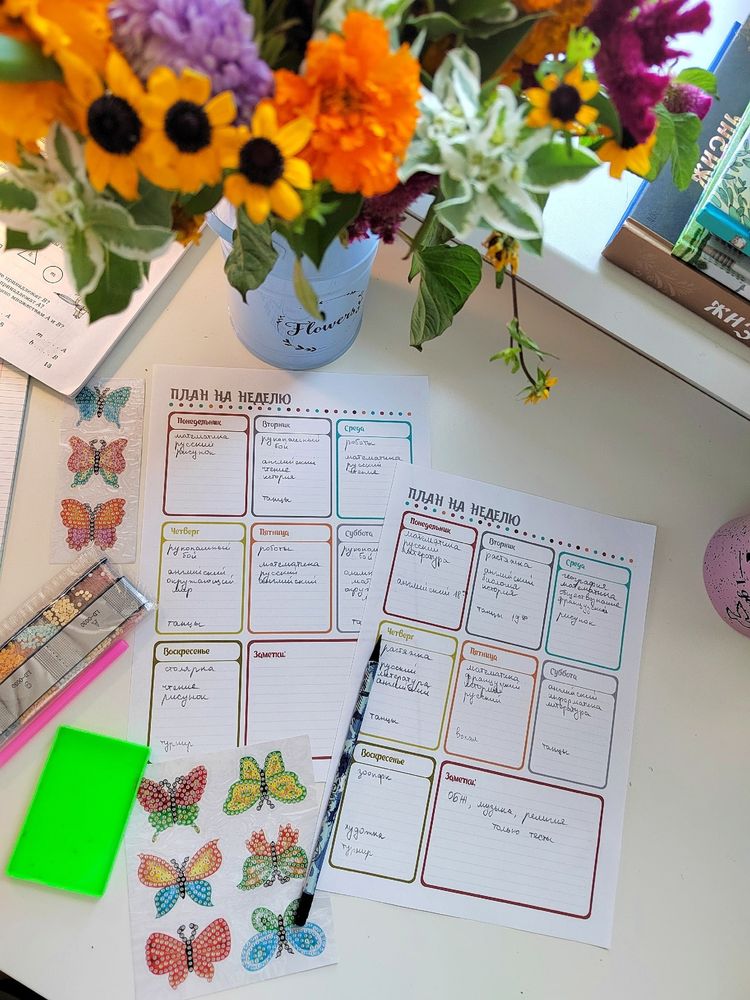 принадлежат В?
принадлежат А?
множествам А и В?
m ... A
b ... B
13
Flowers
ЖИЗНЬ
ПЛАН НА НЕДЕЛЮ
Понедельник
математика
русский
рисунок
Вторник
рукопашный
бой
английский
чтение
история
танцы
Среда
роботы
математика
русский
чтение
Четверг
рукопашный
бой
английский
окружающий
мир
танцы
Пятница
роботы
математика
русский
английский
Суббота
Воскресенье
столярка
чтение
рисунок
турнир
Заметки:
ПЛАН НА НЕДЕЛЮ
Понедельник
математика
русский
литература
английский 18
Вторник
растяжка
английский
биология
история
танцы
Среда
география
математика
обществознание
французский
рисунок
Четверг
растяжка
русский
литература
английский
танцы
Пятница
математика
французский
история
русский
вокал
Суббота
английский
информатика
литература
танцы
Воскресенье
зоопарк
художка
турнир
Заметки:
ОБЖ, музыка, религия
только тесты